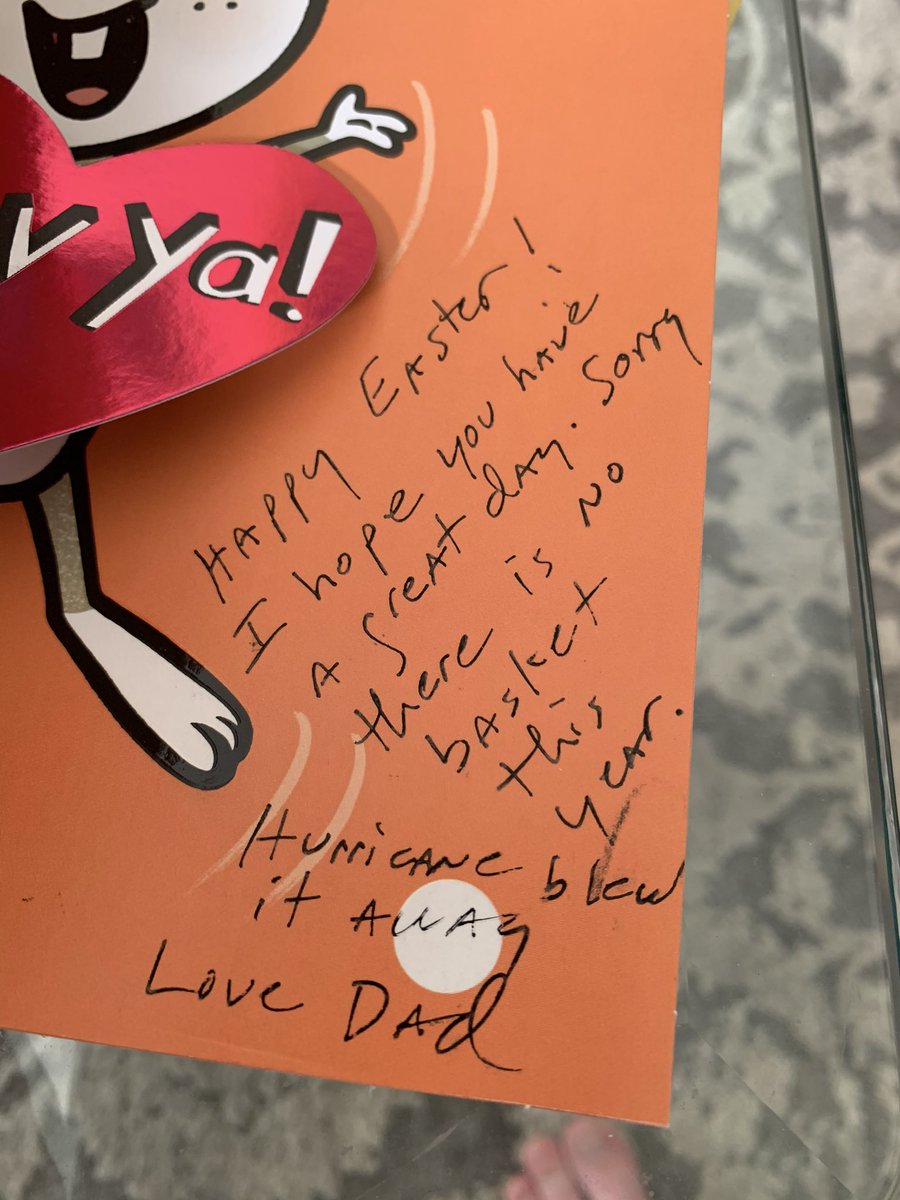 v ya!
Happy Easter!
I hope you have
a great day. Sorry
there is no
basket
this
year.
Hurricane blew
it away
Love Dad